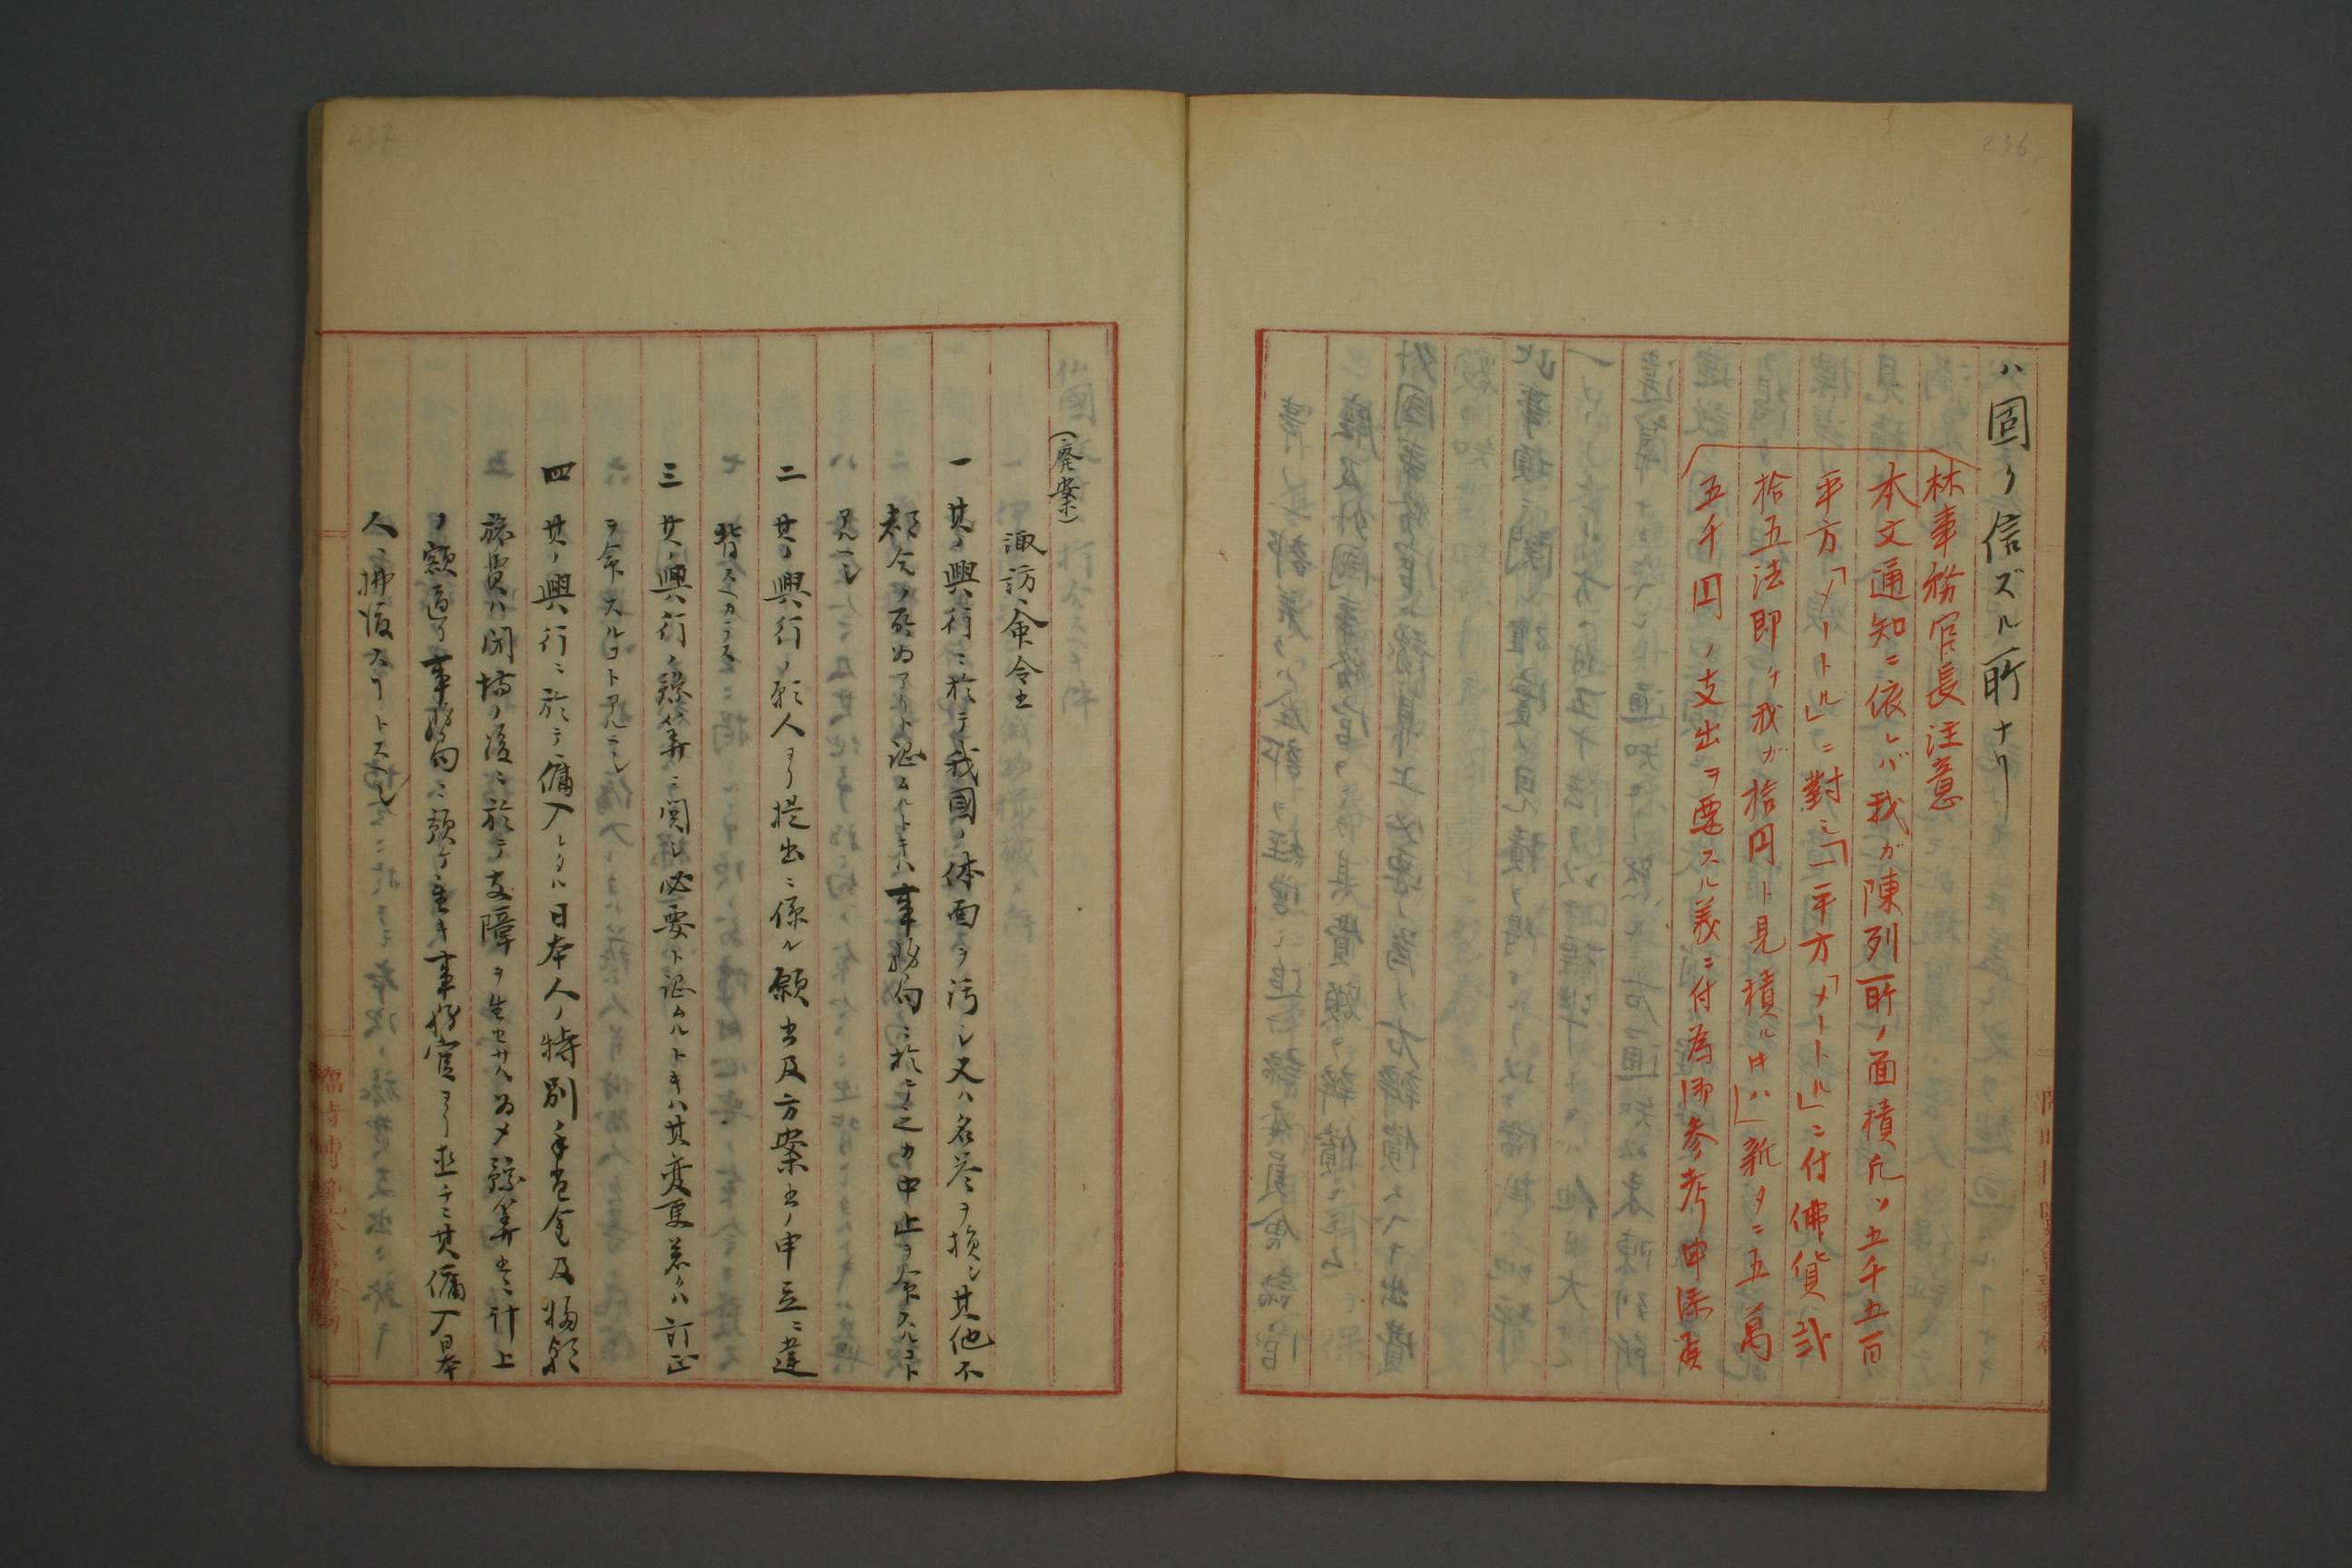 236
ハ固ク信ズル所ナリ
林事務官長注意
本文通知ニ依レバ我ガ陳列所ノ面積凡ソ五千五百
平方「メートル」ニ對シ「一平方「メートル」ニ付佛貨弐
拾五法即チ我ガ拾円ト見積ル時ハ」新タニ五萬
五千円ノ支出ヲ要スル義ニ付為御参考申添候
237
(廃案)
諏訪ヘ命令書
一 其ノ興行ニ於テ我國ノ体面ヲ汚シ又ハ名誉ヲ損シ其他不
都合ノ所為アリト認ムルトキハ事務局ニ於テ之カ中止ヲ命スルコト
アルヘシ
二 其ノ興行ノ願人ヨリ提出ニ係ル願書及方案書ノ申立ニ違
背スヘカラス
三 其ノ興行ノ豫算ニ関シ必要ト認ムルトキハ其変更若クハ訂正
ヲ命スルコトアルヘシ
四 其ノ興行ニ於テ傭入レタル日本人ノ特別手当金及帰朝
旅費ハ閉場ノ後ニ於テ支障ヲ生セサル為メ豫算書ニ計上
ノ額通リ事務局ニ預ケ置キ事務官ヨリ直チニ其傭入日本
人ニ拂渡スコトトスヘシ
臨時博覧会事務局